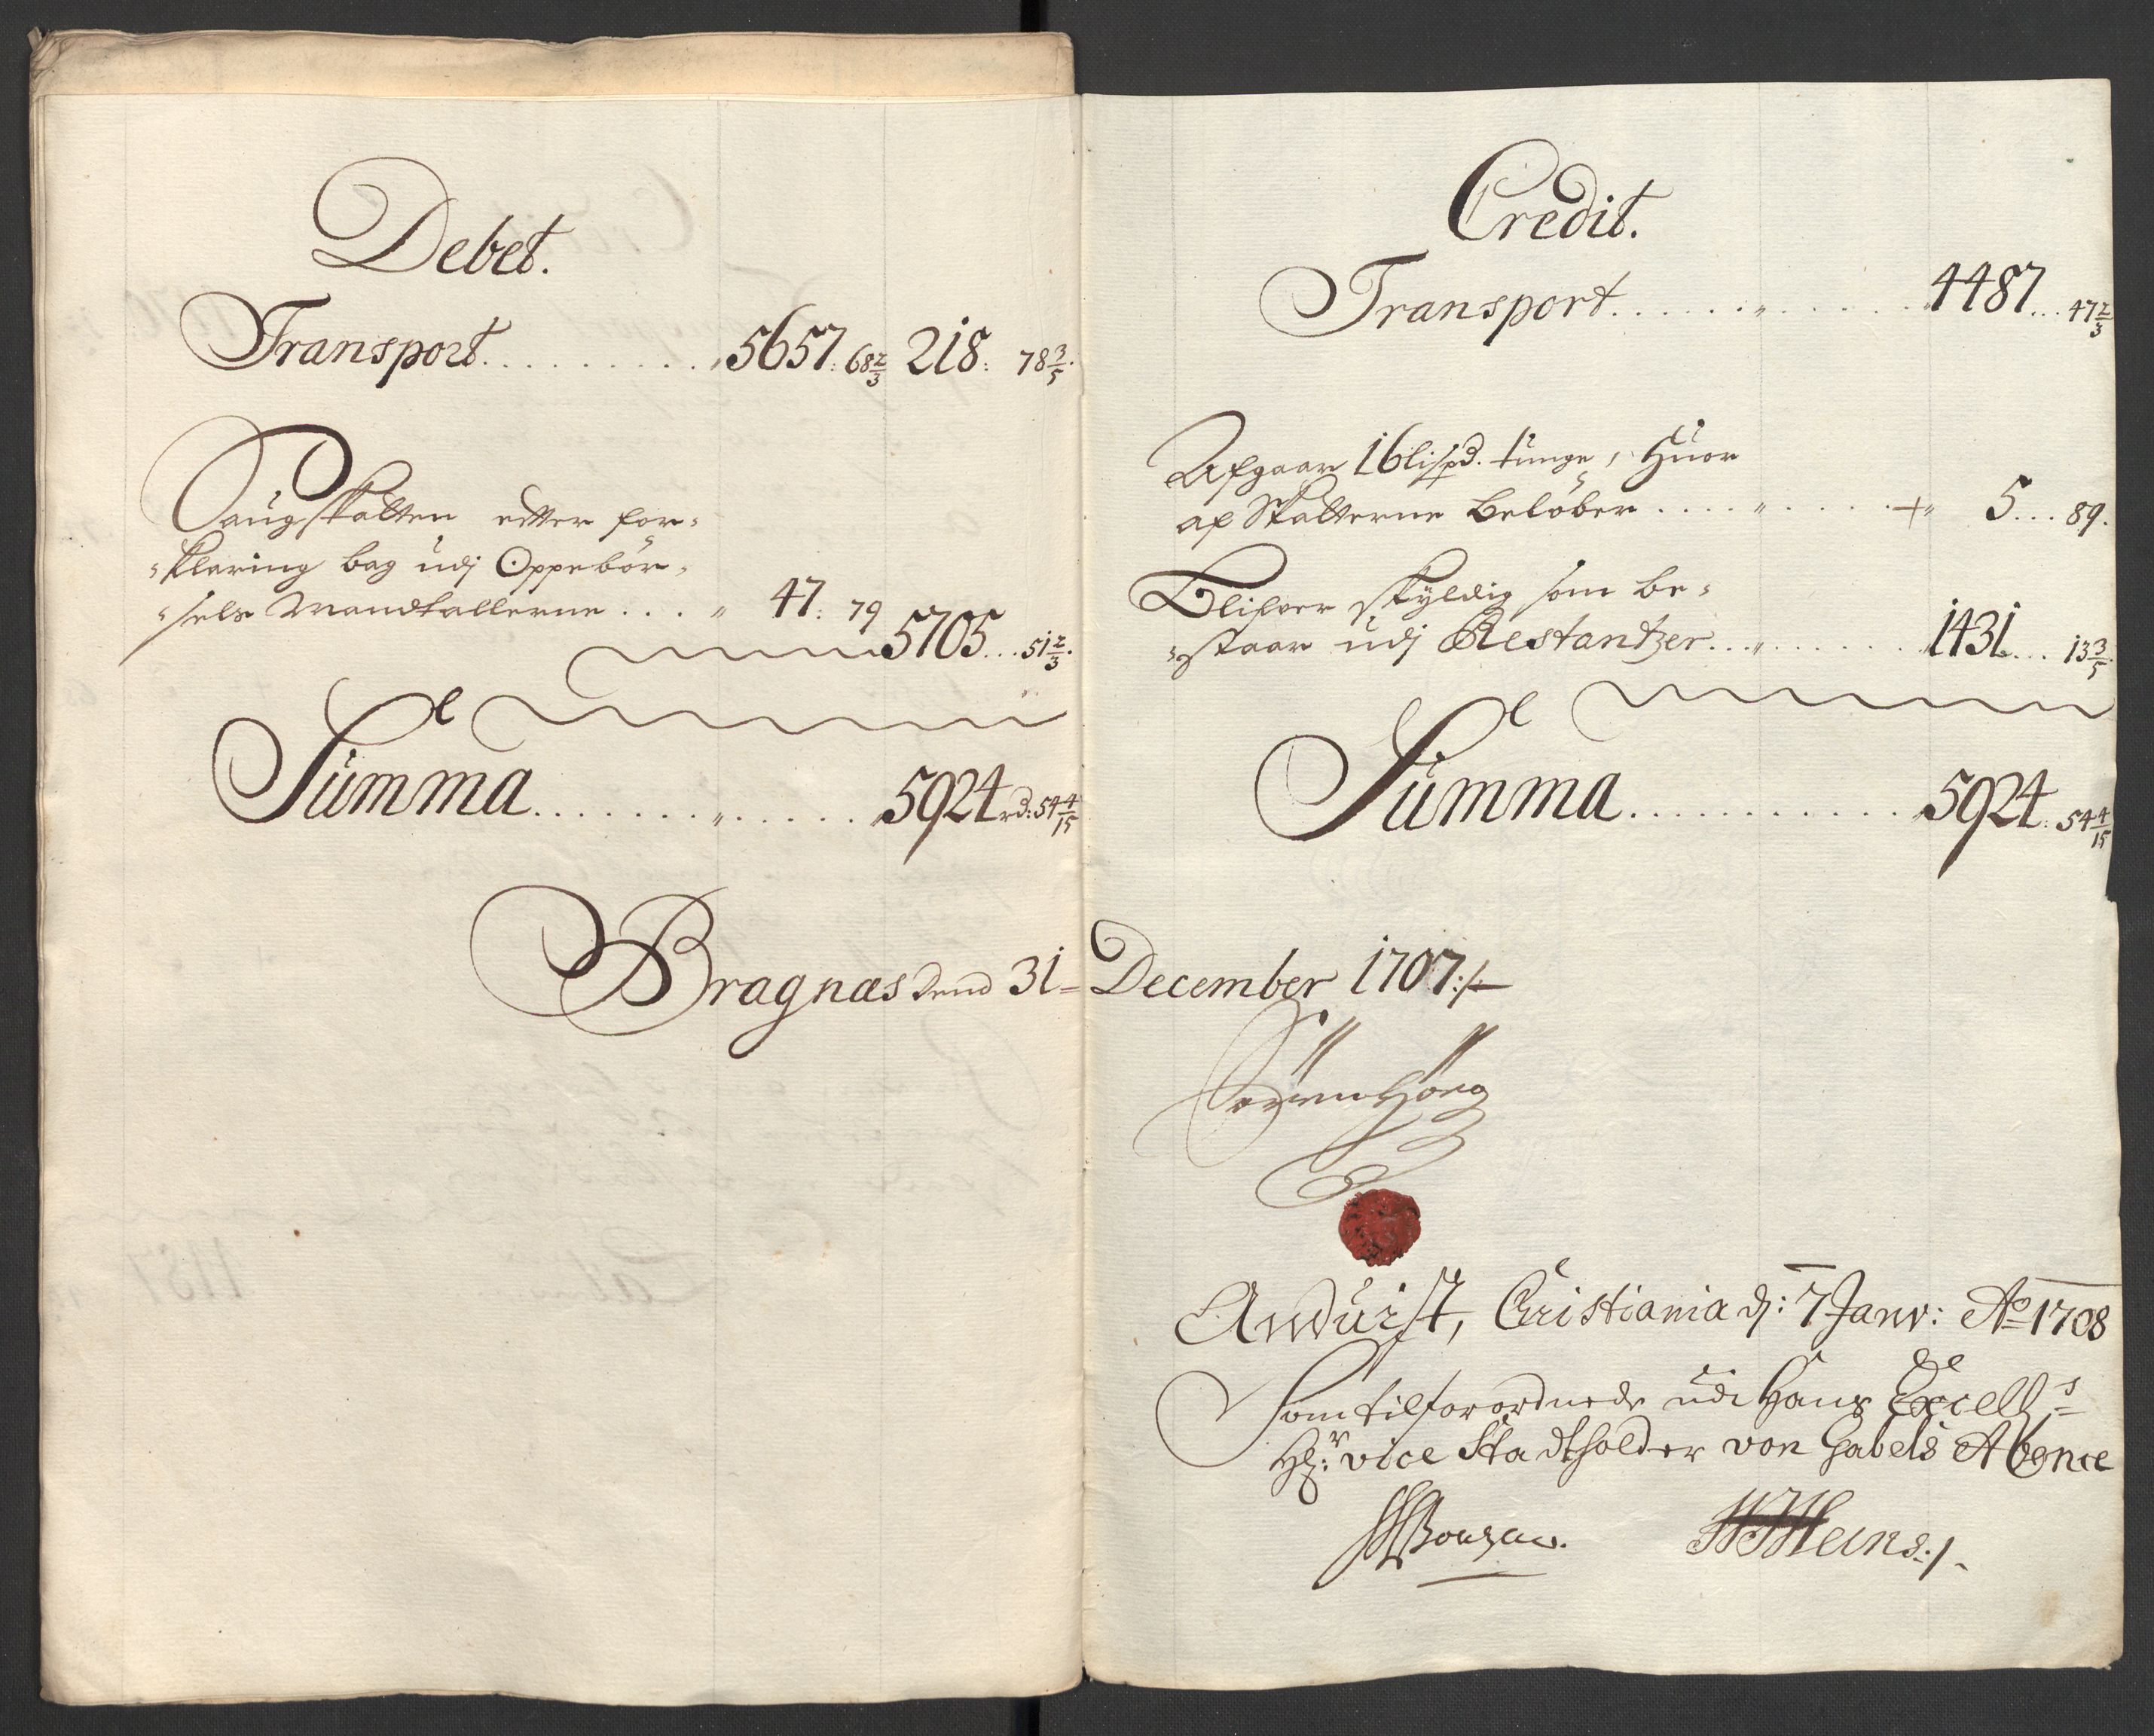 Debet.
Transport . . . . . . . . . 5657: 68 2/3 218: 78 3/5.
Saugskatten efter for-
-klaring bag udj Oppebør-
-sels Mandtallerne . . . „ 47: 79
5705 . . . 51 2/3.
Summa . . . . . . . „ . . . . . 5924 rd: 54 4/15
Bragnæs dend 31=
Credit.
Transport . . . . . . „ . . . . . 4487 . . . 47 2/3
Afgaar 16 lispd. tunge, Huor
af Skatterne beløber . . . . „ . . . . . + „ 5 . . . 89.
Blifver skyldig som be-
-staar udj Restantzer . . . „ . . . . . . 1431 . . . 13 3/5.
Summa . . . . . . . . . . . . 5924: 54 4/15
December 1707:/-
Søren Høeg
Anvuist, Cristiania dj: 7 Janv: Ao 1708
Som tilforordnede udi Hans Excell:s
Hr: vice Stadtholder von Gabels Absence